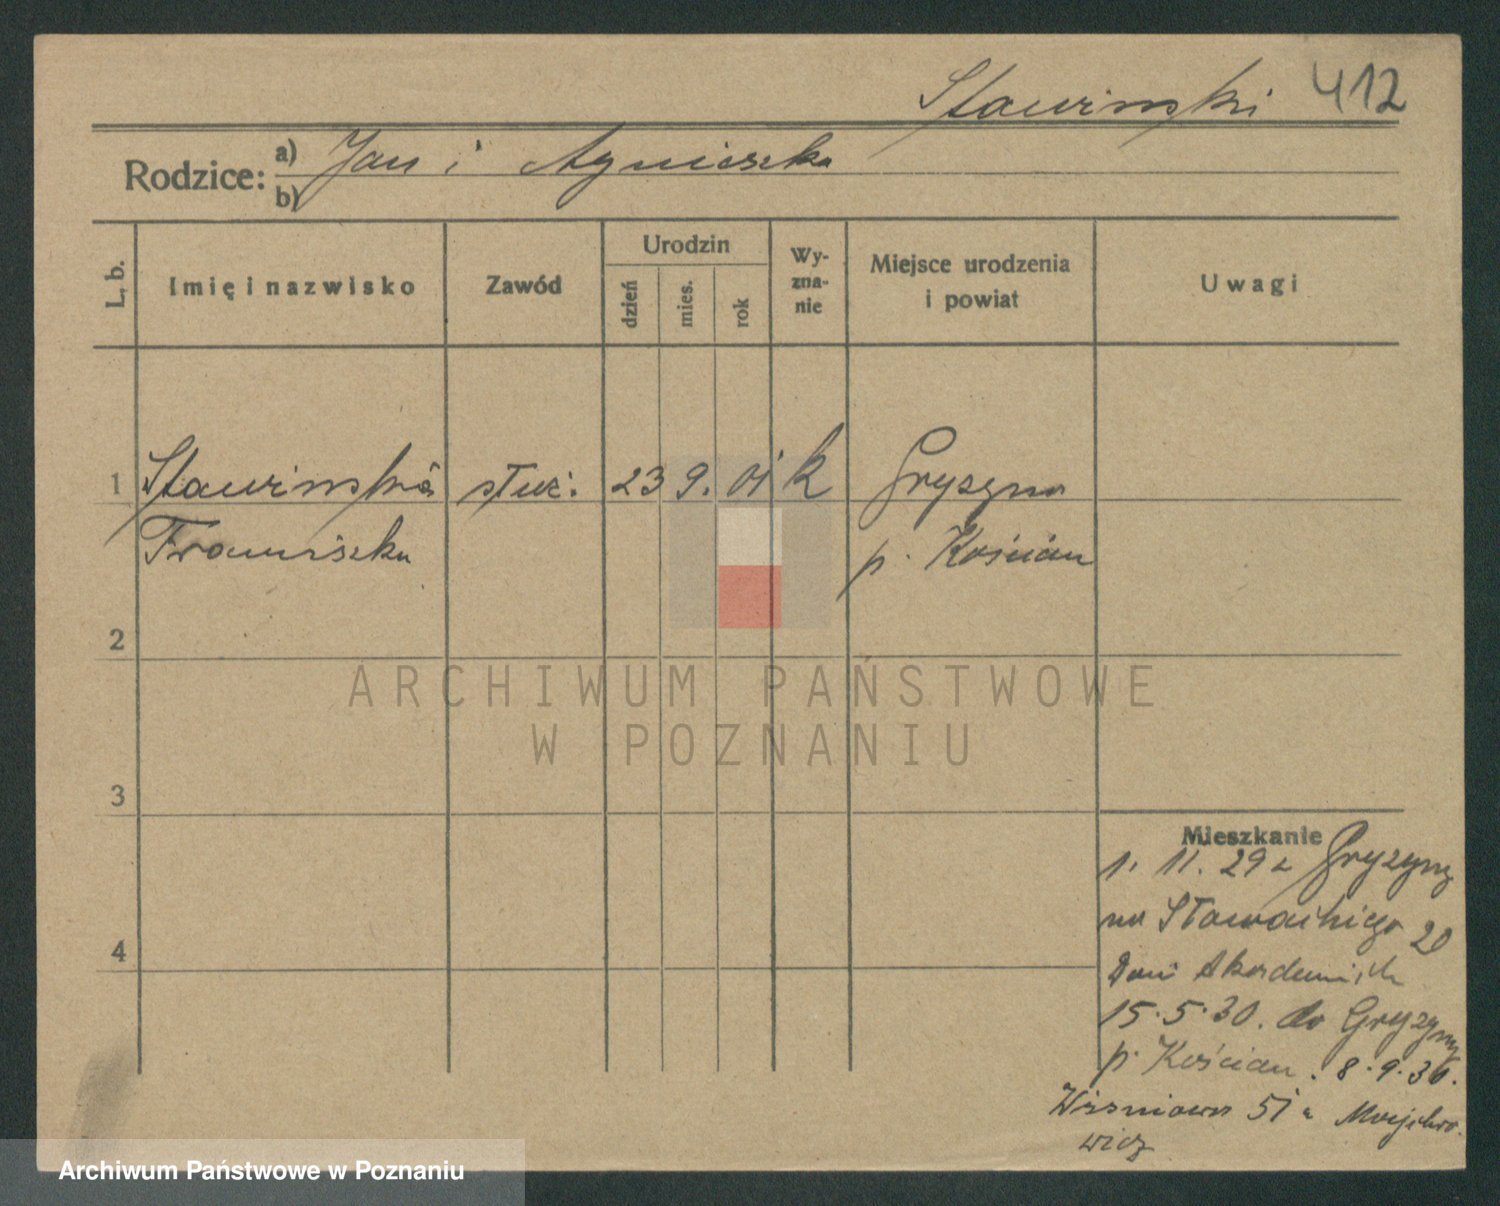 Stawinski 412
Rodzice: a) Jan i Agnieszka
b)
L. b.
Imię i nazwisko
Zawód
Urodzin
dzień
mies.
rok
Wy-
zna-
nie
Miejsce urodzenia
i powiat
Uwagi
1 Stawinska służ. 23 9. 01 k Gryzyna
Franciszka p. Kościan
2
3
4
Mieszkanie
1. 11. 29 z Gryzyny
na Słowackiego 20
Dom Akademick
15.5.30. do Gryzyny
p. Kościan. 8.9.30.
Wiśniowa 51 u
wicz
ARCHIWUM PAŃSTWOWE
W POZNANIU
Archiwum Państwowe w Poznaniu